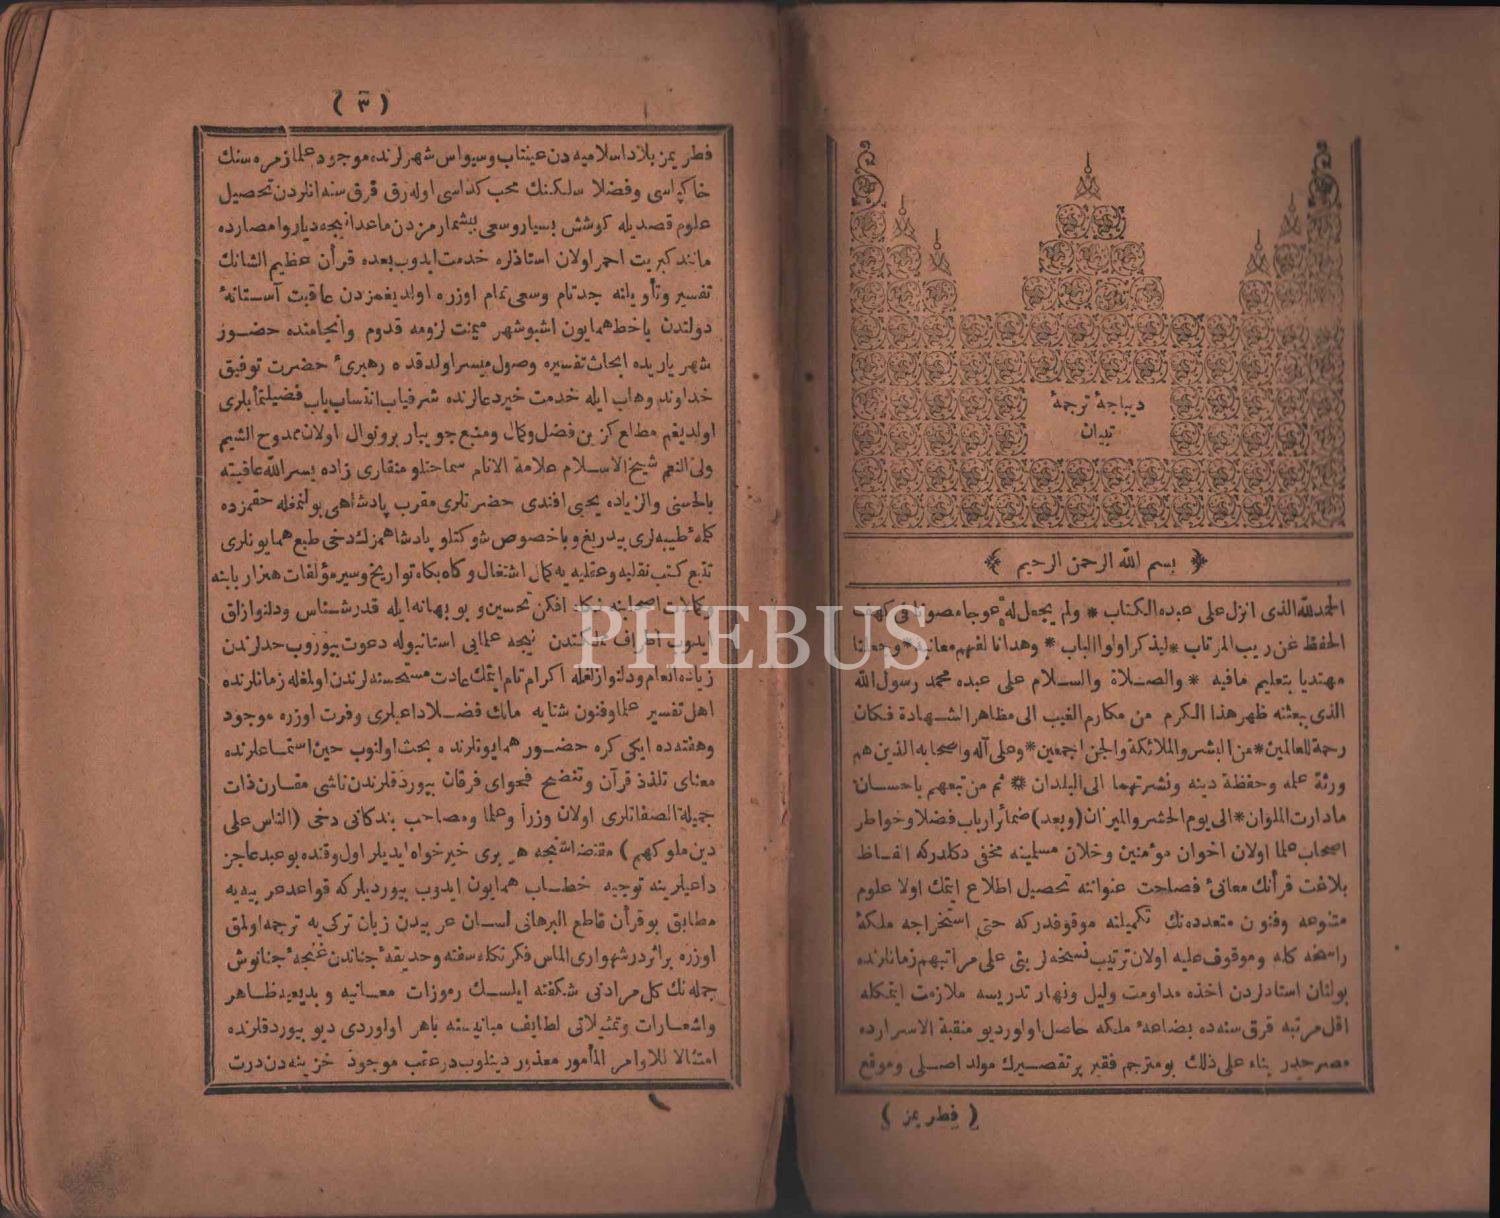 ديباجۀ ترجمۀ
تبيان
بسم الله الرحمن الرحيم
الحمدلله الذى انزل على عبده الكتاب * ولم يجعل له عوجا مصونا فى كهف
الحفظ عن ريب المرتاب * ليذكر اولوا الالباب * وهدانا لفهم معانيه * وجعلنا
مهتديا بتعليم مافيه * والصلاة والسلام على عبده محمد رسول الله
الذى ببعثته ظهر هذا الكرم من مكارم الغيب الى مظاهر الشهادة فكان
رحمة للعالمين * من البشر والملائكة والجن اجمعين * وعلى آله واصحابه الذين هم
ورثة علمه وحفظة دينه ونشرتهما الى البلدان * ثم من تبعهم باحسان
مادارت الملوان * الى يوم الحشر والميزان (وبعد) ضمائر ارباب فضلا وخواطر
اصحاب علما اولان اخوان مؤمنين وخلان مسلمينه مخفى دكلدركه الفاظ
بلاغت قرآنك معانئ فصاحت عنواننه تحصيل اطلاع ايتمك اولا علوم
متنوعه وفنون متعدده نك تكميلنه موقوفدركه حتى استخراجه ملكۀ
راسخه كله وموقوف عليه اولان ترتيب فسخه لر بنى على مراتبهم زمانلرنده
بولنان استادلردن اخذه مداومت وليل ونهار تدريسه ملازمت ايتمكله
اقل مرتبه قرق سنه ده بضاعۀ ملكه حاصل اولور ديو منقبة الاسرارده
مصرحدر بناء على ذلك بو مترجم فقير پر تقصيرك مولد اصلى وموقع
( فطر يمز )
( ٣ )
فطر يمز بلاد اسلاميه دن عينتاب وسيواس شهرلرنده موجود علما زمره سنك
خاكپاسى وفضلا سلكنك محب كداسى اوله رق قرق سنه انلردن تحصيل
علوم قصديله كوشش بسيار وسعى بيشمارمزدن ماعدا نيجه ديار وامصارده
مانند كبريت احمر اولان استاذلره خدمت ايدوب بعده قرآن عظيم الشانك
تفسير وتأويلنه جد تام وسعى تمام اوزره اولديغمزدن عاقبت آستانۀ
دولتدن ياخط همايون اشبو شهر ميمنت لزومه قدوم وانجامنده حضور
شهرياريده ابحاث تفسيره وصول ميسر اولدقده رهبرئ حضرت توفيق
خداوند وهاب ايله خدمت خير دعالرنده شرفياب انتساب باب فضيلتمأبلرى
اولديغم مطاع كز بن فضل وكمال ومنبع جويبار برونوال اولان ممدوح الشيم
ولى النعم شيخ الاسلام علامة الانام سماحتلو منقارى زاده يسر الله عاقبته
بالحسنى والزياده يحيى افندى حضرتلرى مقرب پادشاهى بولنمغله حقمزده
كلۀ طيبه لرى بيدريغ وباخصوص شوكتلو پادشاهمزك دخى طبع همايونلرى
تتبع كتب نقليه وعقليه يه كمال اشتغال وكاه بكاه تواريخ وسير مؤلفات هنر اربابنه
وكالات اصحابنه نكاه افكن تحسين وبو بهانه ايله قدرشناس ودلنوازلق
ايدوب اطراف مملكتدن نيجه علمايى استانبوله دعوت بيوروب حدلرندن
زياده انعام ودلنوازلغله اكرام تام ايتمك عادت مستحسنه لرندن اولمغله زمانلرنده
اهل تفسير علما وفنون شتايه مالك فضلا داعيلرى وفرت اوزره موجود
وهفته ده ايكى كره حضور همايونلرنده بحث اولنوب حين استماعلرنده
معناى تلذذ قرآن وتفضيح فحواى فرقان بيوردقلرندن ناشى مقارن ذات
جميلة الصفاتلرى اولان وزرا وعلما ومصاحب بندكانى دخى (الناس على
دين ملوكهم) مقتضاسنجه هر برى خيرخواه ايديلر اول وقتده بوعبد عاجز
داعيلرينه توجيه خطاب همايون ايدوب بيورديلركه قواعد عربيه يه
مطابق بو قرآن قاطع البرهانى لسان عربيدن زبان تركى يه ترجمه اولمق
اوزره برائر درشهوارى الماس فكر نكله سفته وحديقۀ جناندن غنجۀ جنانوش
جمله نك كل مرادنى شكفته ايلسك رموزات معانيه وبديعيه ظاهر
واشعارات وتمثيلاتى لطايف مبانيسنه باهر اولوردى ديو بيوردقلرنده
امتثالا للاوامر المأمور معذور دينلوب درعقب موجود خزينه دن درت
PHEBUS